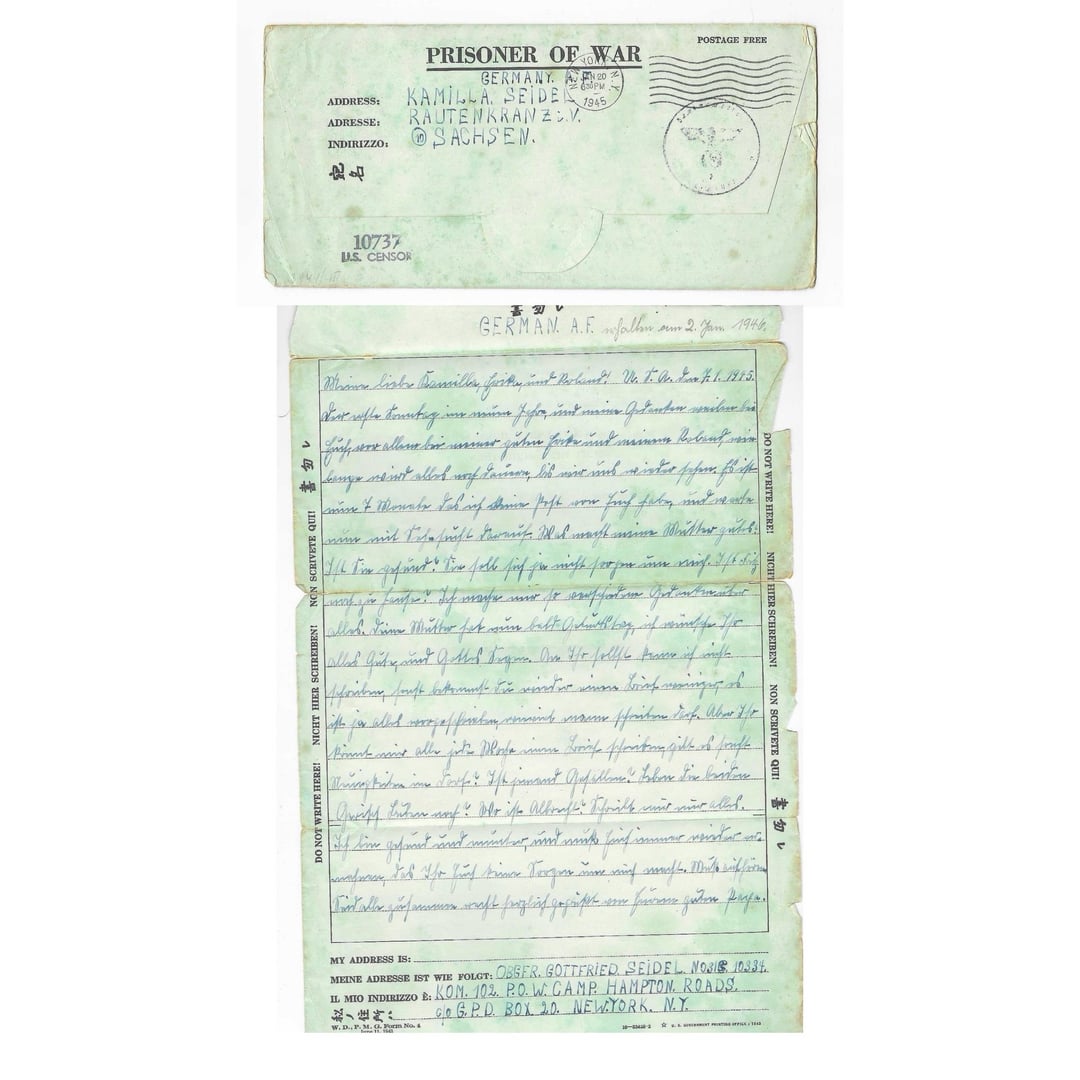 POSTAGE FREE
PRISONER OF WAR
GERMANY.
ADDRESS: KAMILLA SEIDEL
ADRESSE: RAUTENKRANZ i.V.
INDIRIZZO: (10) SACHSEN.
宛名
NEW YORK, N.Y.
JAN 20
630 PM
1945
10737
U.S. CENSOR
書勿レ
GERMAN. A.F. erhalten am 2. Jan. 1946.
Meine liebe Kamilla, Heike, und Roland! U. S. A. den 7.1.1945.
Der erste Sonntag im neuen Jahre, und meine Gedanken weilen bei
Euch, vor allem bei meiner guten Heike und meinem Roland, wie
lange wird alles noch dauern, bis wir uns wieder sehen. Es ist
nun 7 Monate das ich keine Post von Euch habe, und warte
nun mit Sehsucht darauf. Was macht meine Mutter gutes?
Ist Sie gesund? Sie soll sich ja nicht sorgen um mich. Ist
noch zu Hause? Ich mache mir so verschiedene Gedanken über
alles. Deine Mutter hat nun bald Geburtstag, ich wünsche Ihr
alles Gute, und Gottes Segen. An Ihr selbst kann ich nicht
schreiben, sonst bekommst Du wieder einen Brief weniger, es
ist ja alles vorgeschrieben, wieviel manne schreiben darf. Aber Ihr
könnt mir alle jede Woche einen Brief schreiben, gibt es sonst
Neuigkeiten im Dorf? Ist jemand Gefallen? Leben die beiden
noch? Wo ist Albrecht? Schreibt mir nur alles.
Ich bin gesund und munter, und muß Euch immer wieder er-
mahnen, das Ihr Euch keine Sorgen um mich macht. Muß aufhören
Seid alle zusammen recht herzlich gegrüßt von Eurem guten Papa.
DO NOT WRITE HERE! NICHT HIER SCHREIBEN! NON SCRIVETE QUI! 書勿レ
DO NOT WRITE HERE! NICHT HIER SCHREIBEN! NON SCRIVETE QUI! 書勿レ
MY ADDRESS IS:
MEINE ADRESSE IST WIE FOLGT: OBGFR. GOTTFRIED. SEIDEL. NO31G. 10334.
IL MIO INDIRIZZO È: KOM. 102. P.O.W. CAMP. HAMPTON. ROADS.
私ノ住所ハ c/o G.P.D. BOX 20. NEW.YORK. N.Y.
W. D., P. M. G. Form No. 4
June 11, 1943
16—33428-2 ☆ U. S. GOVERNMENT PRINTING OFFICE : 1943